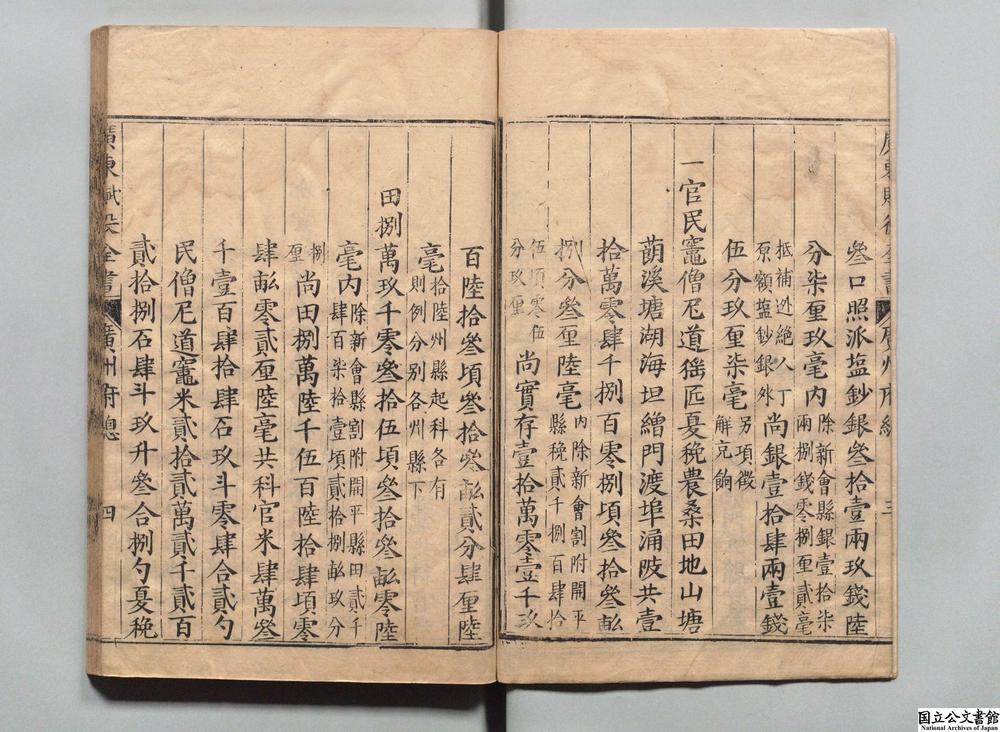 廣東賦役全書 廣州府總 三
叄口照派塩鈔銀叄拾壹兩玖錢陸
分柒厘玖毫內除新會縣銀壹拾柒兩捌錢零捌厘貳毫
抵補迯絕人丁原額塩鈔銀外尚銀壹拾肆兩壹錢
伍分玖厘柒毫另項徵解充餉
一官民竈僧尼道猺匹夏稅農桑田地山塘
蓢溪塘湖海坦繒門渡埠涌陂共壹
拾萬零肆千捌百零捌頃叄拾叄畝
捌分叄厘陸毫內除新會割附開平縣稅貳千捌百肆拾
伍頃零伍分玖厘尚實存壹拾萬零壹千玖
百陸拾叄頃叄拾叄畝貳分肆厘陸
毫拾陸州縣起科各有則例分别各州縣下
田捌萬玖千零叄拾伍頃叄拾叄畝零陸
毫內除新會縣割附開平縣田貳千肆百柒拾壹頃貳拾捌畝玖分
捌厘尚田捌萬陸千伍百陸拾肆頃零
肆畝零貳厘陸毫共科官米肆萬叄
千壹百肆拾肆石玖斗零肆合貳勺
民僧尼道竈米貳拾貳萬貳千貳百
貳拾捌石肆斗玖升叄合捌勺夏稅
廣東賦役全書 廣州府總 四
国立公文書館
National Archives of Japan